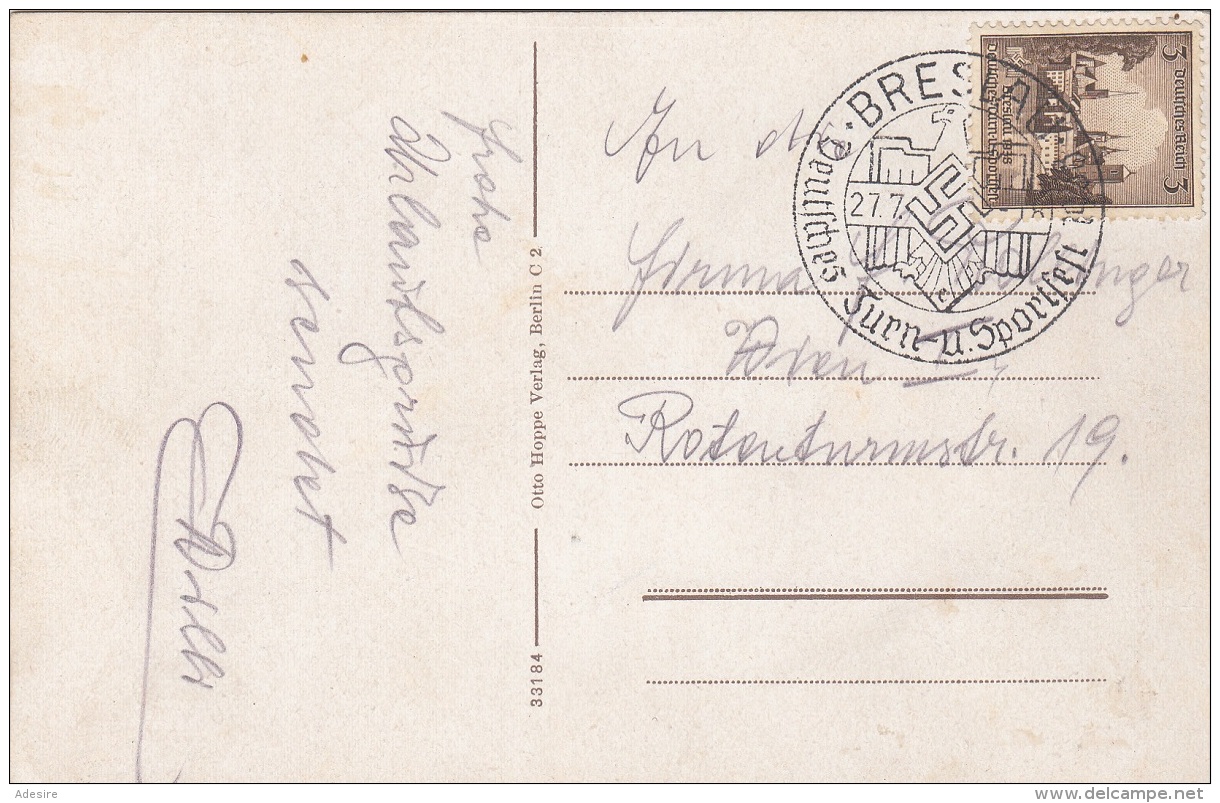 Frohe
Urlaubsgrüße
sendet
Willi
Otto Hoppe Verlag, Berlin C 2
33184
BRESLAU
27.7.
Deutsches Turn- u. Sportfest
3 Deutsches Reich 3
Breslau 1938
Deutsches Turn- u. Sportfest
An die
Firma
Wien I,
Rotenturmstr. 19.
Adesire
www.delcampe.net